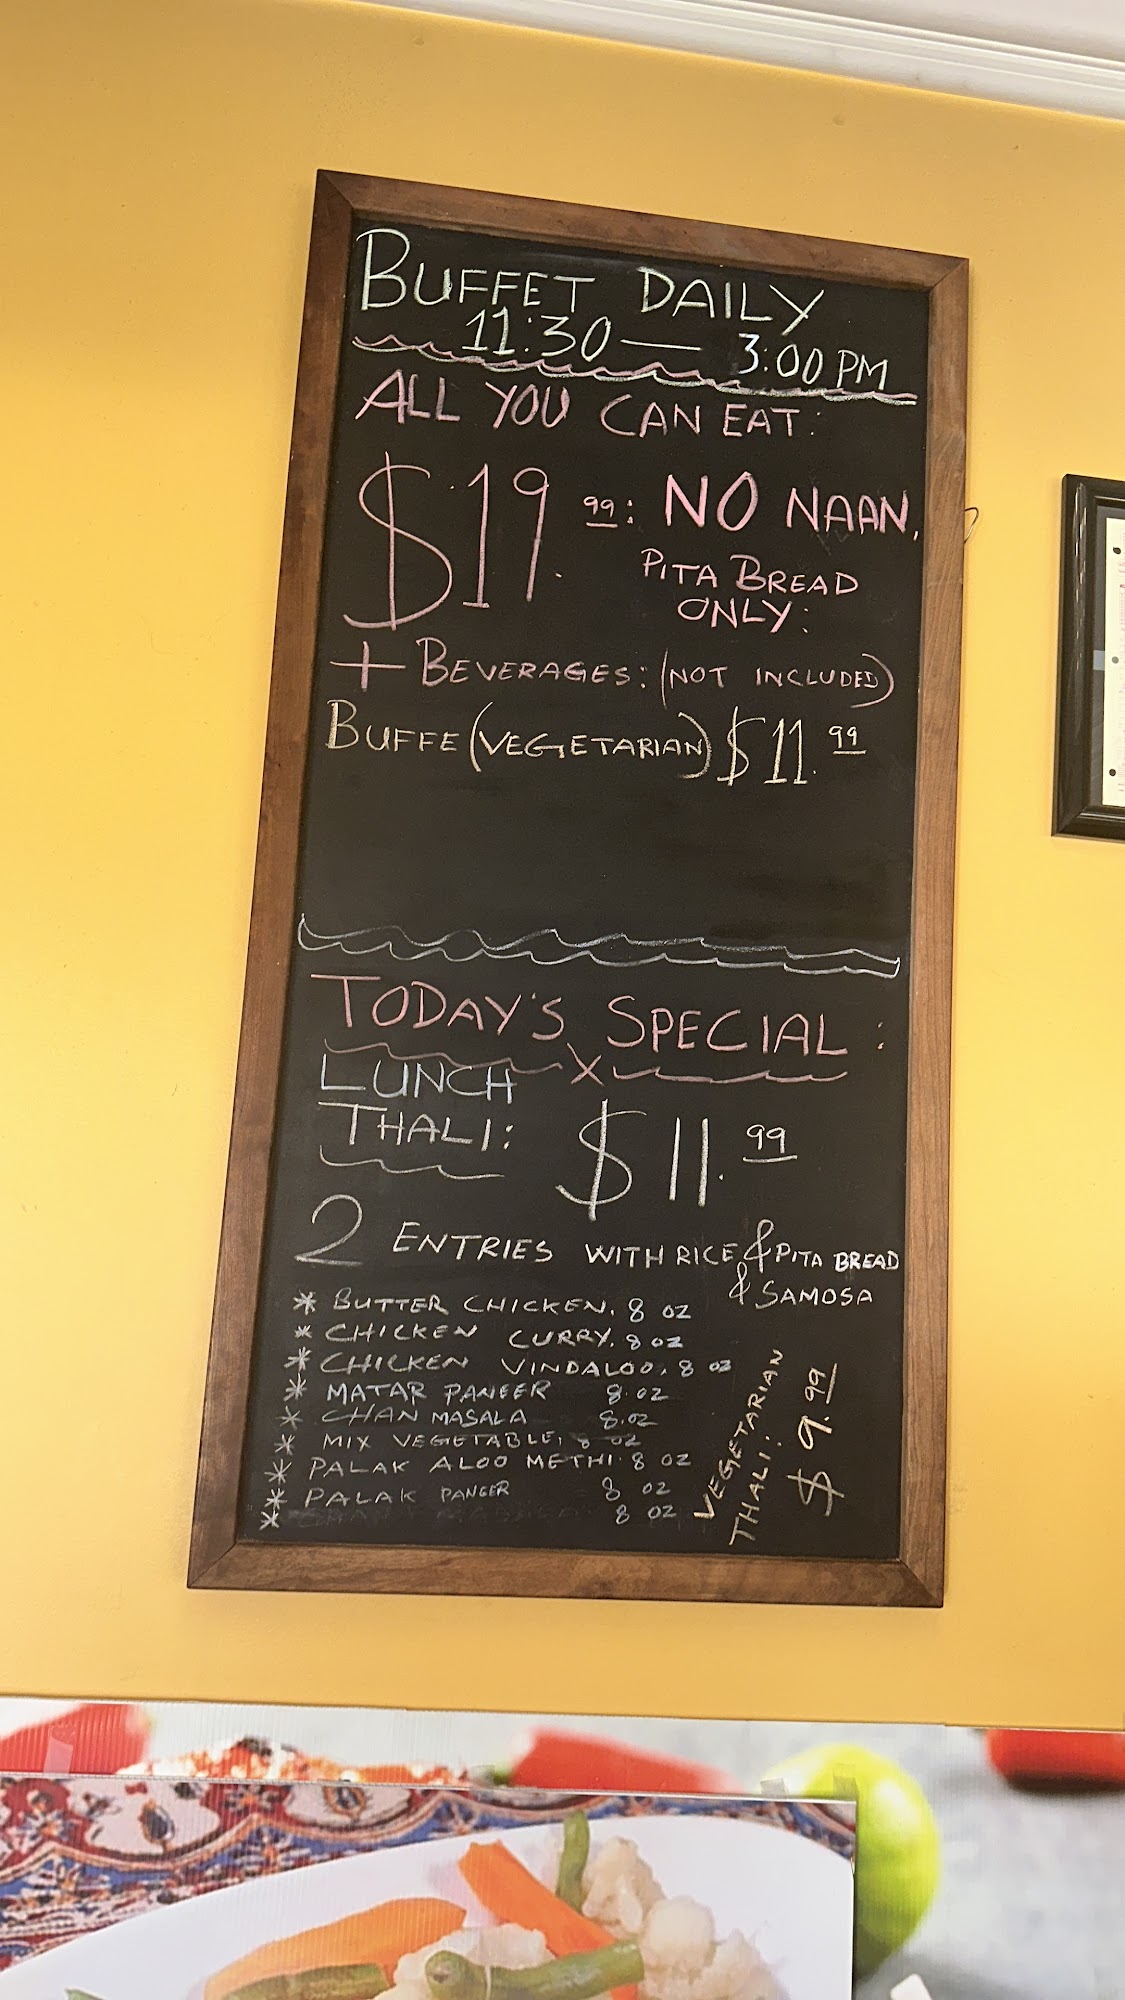 BUFFET DAILY
11:30 — 3:00 PM
ALL YOU CAN EAT:
$19.99: NO NAAN,
PITA BREAD
ONLY:
+ BEVERAGES: (NOT INCLUDED)
BUFFE (VEGETARIAN) $11.99
TODAY'S SPECIAL:
LUNCH
THALI: $11.99
2 ENTRIES WITH RICE & PITA BREAD
& SAMOSA
* BUTTER CHICKEN. 8 OZ
* CHICKEN CURRY. 8 OZ
* CHICKEN VINDALOO. 8 OZ
* MATAR PANEER 8.OZ
* CHAN MASALA 8.OZ
* MIX VEGETABLE. 8 OZ
* PALAK ALOO METHI. 8 OZ
* PALAK PANEER 8 OZ
* 8 OZ
VEGETARIAN
THALI: $9.99